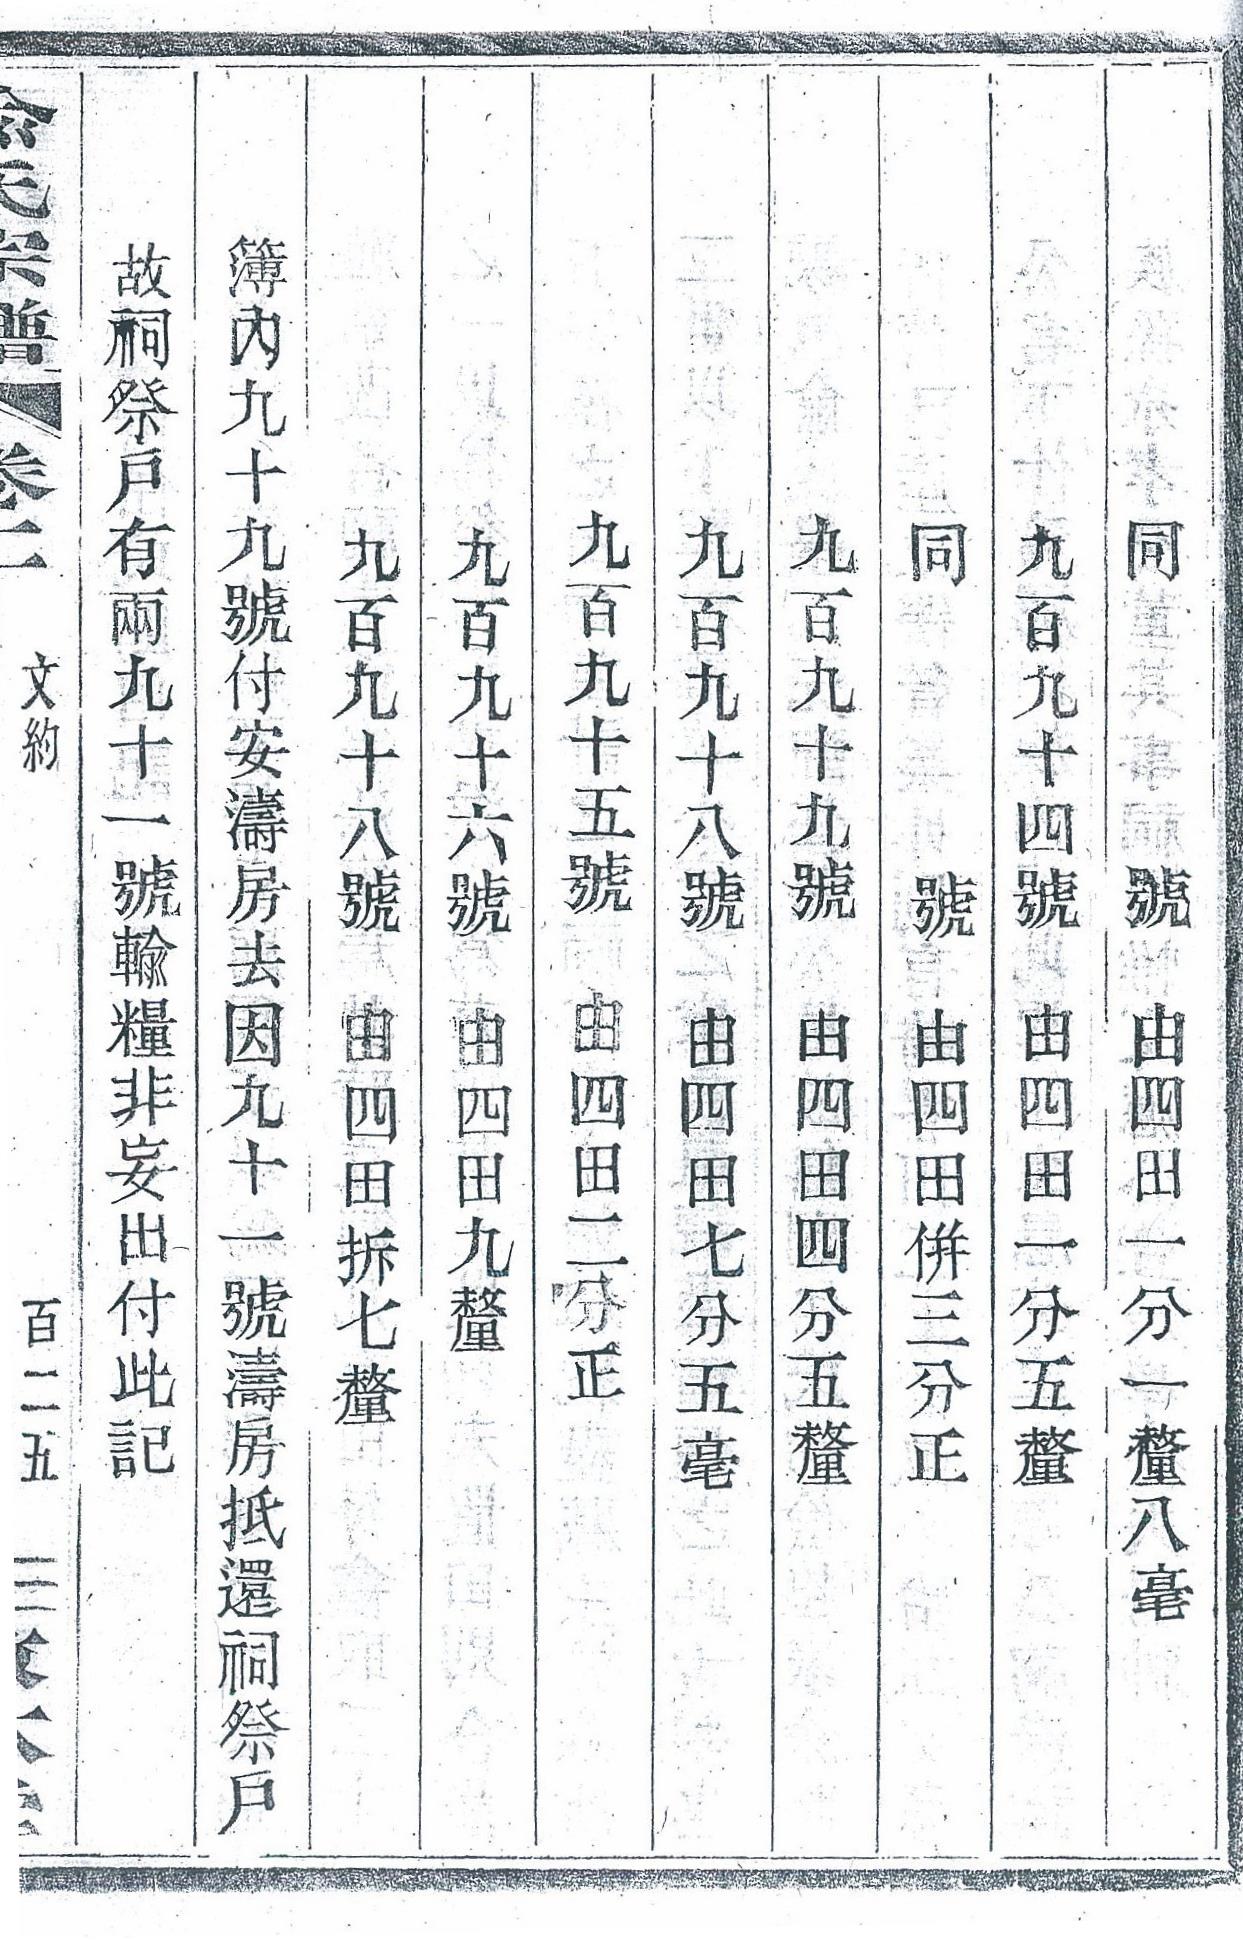 同　　　　號　由四田一分一釐八毫
九百九十四號　由四田一分五釐
同　　　　號　由四田併三分正
九百九十九號　由四田四分五釐
九百九十八號　由四田七分五毫
九百九十五號　由四田二分正
九百九十六號　由四田九釐
九百九十八號　由四田拆七釐
簿內九十九號付安濤房去因九十一號濤房抵還祠祭戶
故祠祭戶有兩九十一號輸糧非妄出付此記
氏宗譜　卷二　文約　百二五